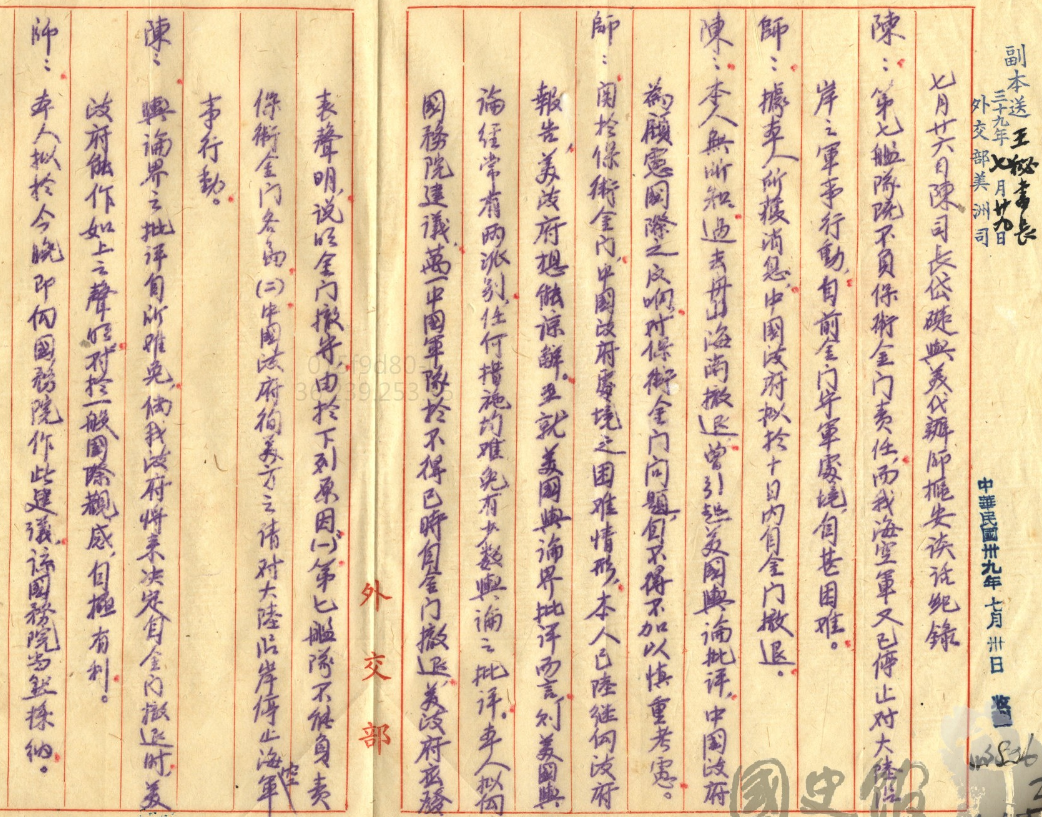 副本送 王秘書長
三十九年七月廿九日
外交部美洲司
中華民國卅九年七月卅日
七月廿六日陳司長岱礎與美代辦師樞安談話紀錄
陳：第七艦隊既不負保衛金門責任，而我海空軍又已停止對大陸沿
岸之軍事行動，目前金門守軍處境，自甚困難。
師：據本人所獲消息，中國政府擬於十日內自金門撤退。
陳：本人無所知，過去舟山海南撤退，曾引起美國輿論批評，中國政府
為顧慮國際之反响，對保衛金門問題，自不得不加以慎重考慮。
師：關於保衛金門，中國政府處境之困難情形，本人已陸續向政府
報告，美政府想能諒解。至就美國輿論界批評而言，則美國輿
論經常有兩派別，任何措施，均難免有少數輿論之批評。本人擬向
國務院建議，萬一中國軍隊於不得已時自金門撤退，美政府應發
外交部
表聲明，說明金門撤守，由於下列原因(一)第七艦隊不能負責
保衛金門各島(二)中國政府徇美方之請對大陸沿岸停止海空軍
事行動。
陳：輿論界之批評自所難免，倘我政府將來決定自金門撤退時，美
政府能作如上之聲明，對於一般國際觀感，自極有利。
師：本人擬於今晚即向國務院作此建議，該國務院當能採納。
國史館